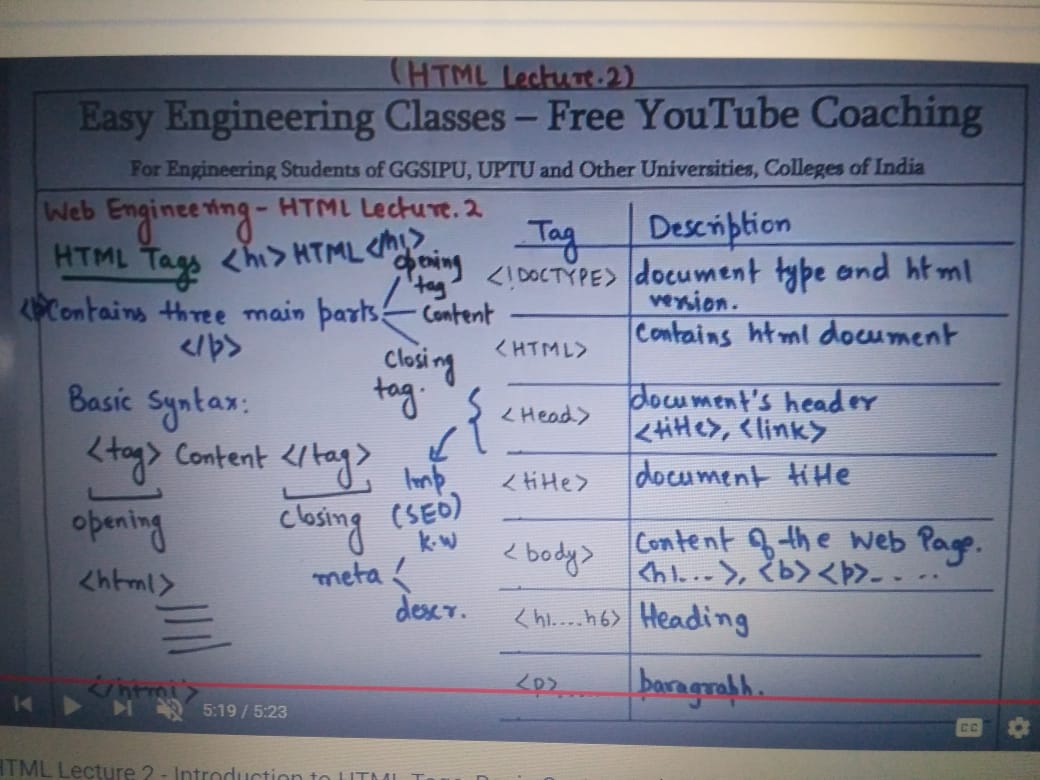 (HTML Lecture.2)
Easy Engineering Classes – Free YouTube Coaching
For Engineering Students of GGSIPU, UPTU and Other Universities, Colleges of India
Web Engineering - HTML Lecture.2
HTML Tags <h1> HTML </h1>
<p>Contains three main parts
</p>
opening
tag
Content
Closing
tag.
Basic Syntax:
<tag> Content </tag>
opening
closing
Imp
(SEO)
K.W
meta
descr.
<html>
</html>
Tag Description
<!DOCTYPE> document type and html
version.
<HTML> Contains html document
<Head> document's header
<title>, <link>
<title> document title
<body> Content of the Web Page.
<h1...>, <b> <p>.....
<h1....h6> Heading
<p>.... paragraph.
5:19 / 5:23
CC
HTML Lecture 2 - Introduction to HTML Tags, Basic